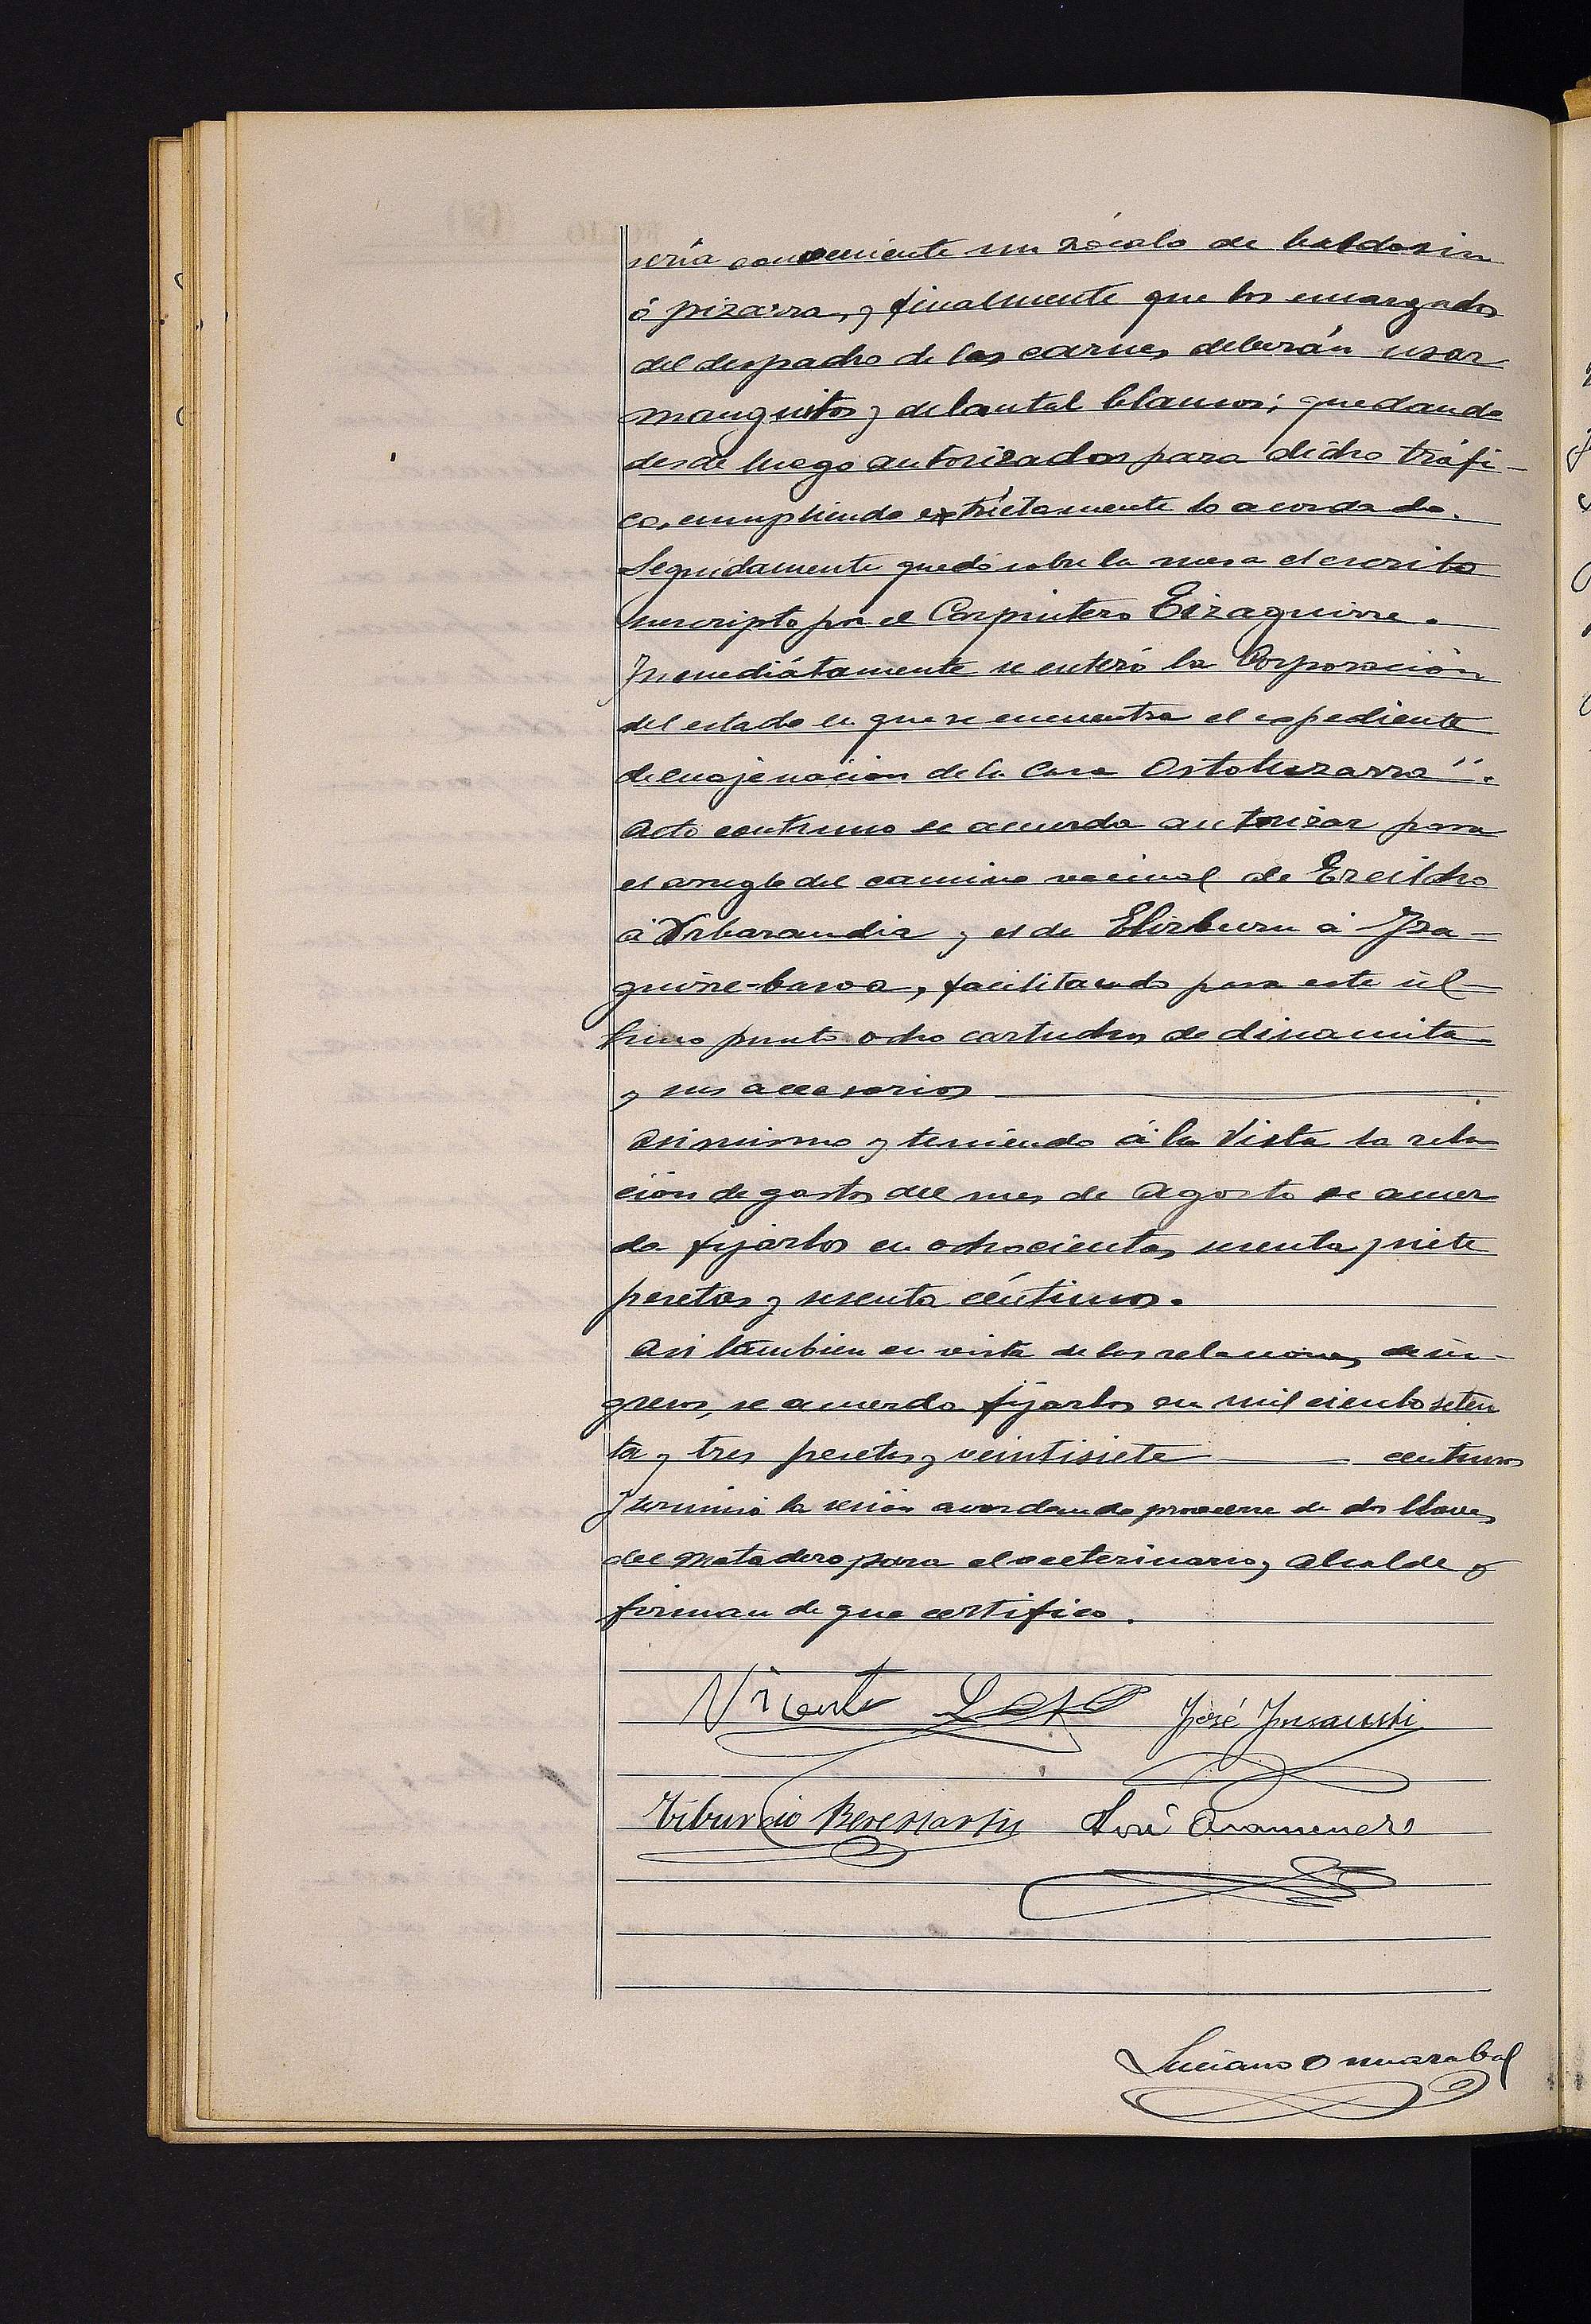 sería conveniente un zócalo de baldosin
ó pizarra, y finalmente que los encargados
del despacho de las carnes deberán usar
manguitos y delantal blancos; quedando
desde luego autorizados para dicho tráfi-
co, cumpliendo extrictamente lo acordado.
Seguidamente quedó sobre la mesa el escrito
suscripto por el Carpintero Eizaguirre.
Inmediátamente se enteró la Corporación
del estado en que se encuentra el expediente
de enajenación de la Casa Ostatuzarra".
Acto contínuo se acuerda autorizar para
el arreglo del camino vecinal de Ereilcho
á Urbarandia y el de Elizburu á Iza-
guirre-baroa, facilitando para este úl-
timo punto ocho cartuchos de dinamita
y sus accesorios
Asimismo y teniendo á la Vista la rela
ción de gastos del mes de Agosto se acuer
da fijarlos en ochocientas sesenta y siete
pesetas y sesenta céntimos.
Asi tambien en vista de las relaciones de in-
gresos, se acuerda fijarlos en mil ciento seten
ta y tres pesetas y veintisiete centimos
Y terminó la sesión acordando proveerse de dos llaves
del Matadero para el veeterinario y Alcalde y
firman de que certifico.
Vicente José Insausti
Tiburcio Beresiartu José Aramendi
Luciano Omarabal